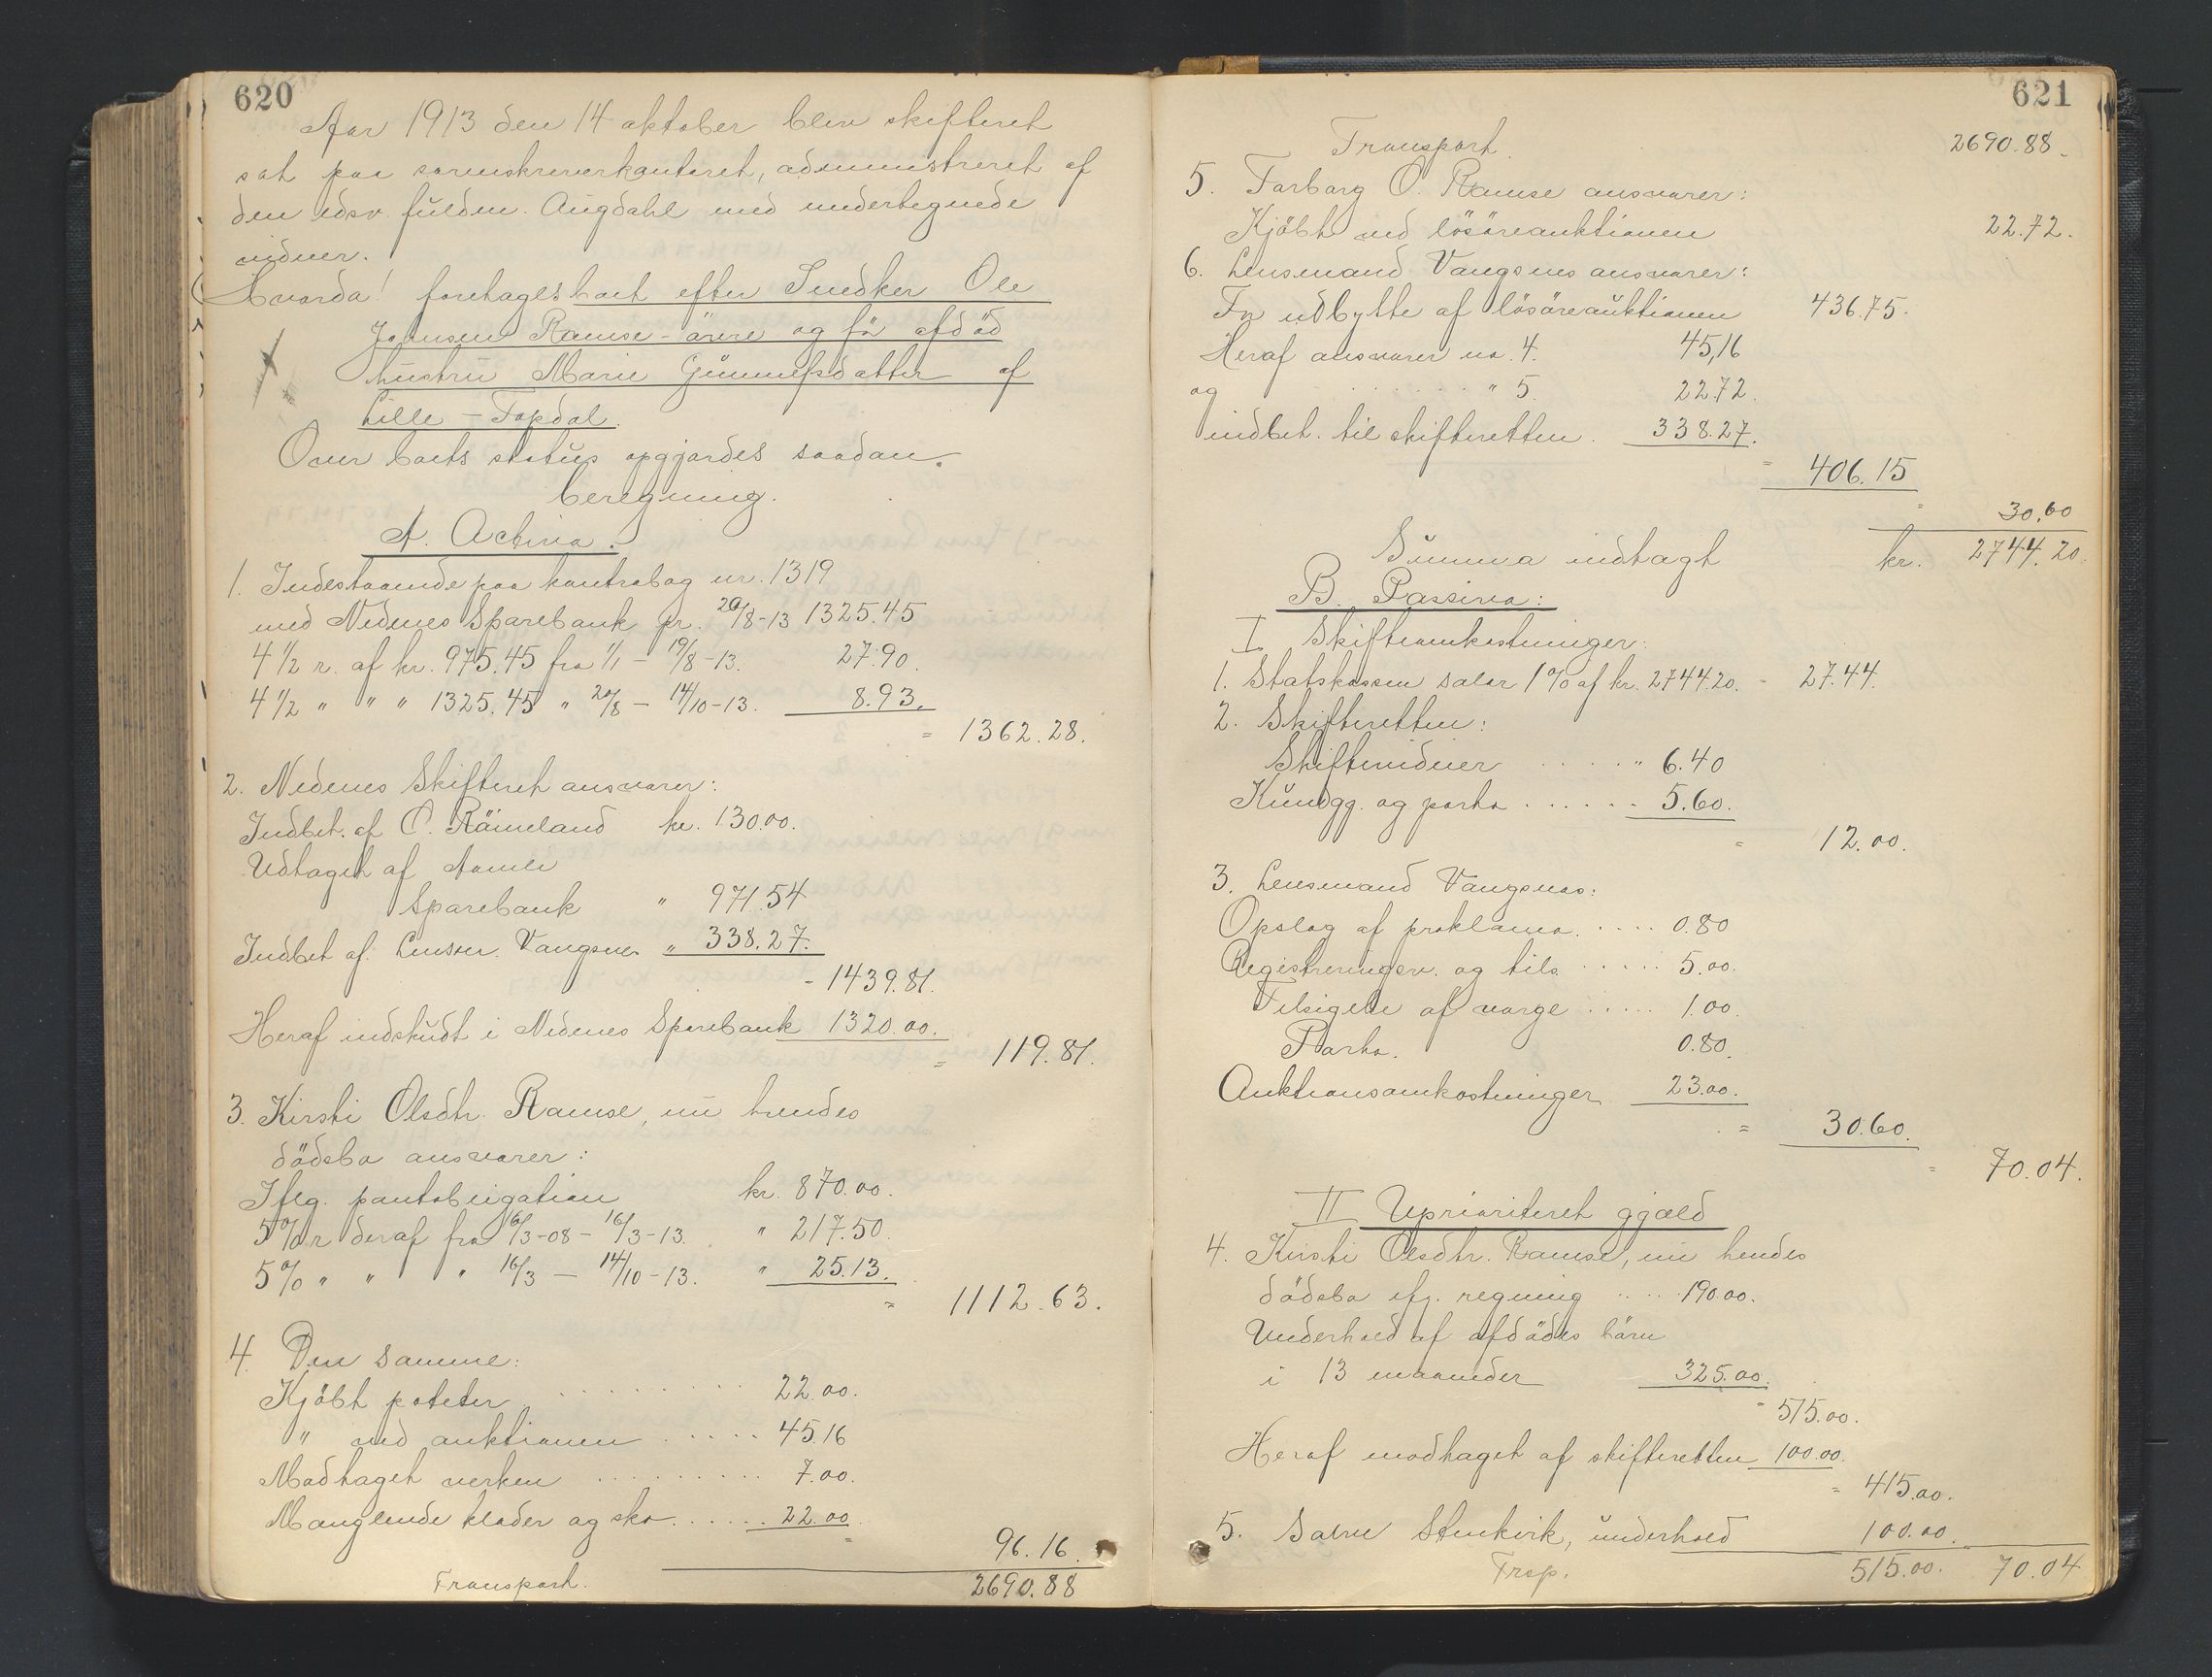 620
Aar 1913 den 14 oktober blev skifteret
sat paa sorenskriverkontoret, administreret af
den edsv. fuldm. Augdahl med undertegnede
vidner.
Hvorda! foretages boet efter Snedker Ole
Jonnsen Ramse - ävre og før afdöd
hustru Marie Gunnufsdatter af
Lille - Topdal.
Over boets status opgjordes saadan
beregning.
A. Activa.
1. Indestaaende paa kontrabog nr. 1319
med Nedenes Sparebank pr. 20/8-13 1325.45
4 1/2 r. af kr. 975.45 fra 1/1 - 19/8 -13. 27.90.
4 1/2 " " " 1325.45 " 20/8 - 14/10-13. 8.93.
= 1362.28.
2. Nedenes Skifteret ansvarer:
Indbet. af O. Räineland kr. 130.00.
Udtaget af Aamli
Sparebank " 971.54
Indbet af. Lensm. Vangsnes " 338.27.
- 1439.81.
Heraf indskudt i Nedenes Sparebank 1320.00.
= 119.81.
3. Kirsti Olsdtr. Ramse, nu hendes
dödsbo ansvarer:
Iflg. pantobligation kr. 870.00.
5% r deraf fra 16/3-08 - 16/3-13. " 217.50.
5% " " " 16/3 - 14/10-13. " 25.13.
= 1112.63.
4. Den samme:
Kjöbt poteter ......... 22.00.
" ved auktionen ..... 45.16
Modtaget verken ......... 7.00.
Manglende klæder og sko ...... 22.00
= 96.16.
Transport. 2690.88
621
Transport. 2690.88.
5. Torborg O. Ramse ansvarer:
Kjöbt ved lösöreauktionen 22.72.
6. Lensmand Vangsnes ansvarer:
For udbytte af lösöreauktionen 436.75.
Heraf ansvarer no. 4. 45,16
og ....... " 5. 22.72.
indbet. til skifteretten. 338.27.
= 406.15
= 30.60
Summa indtægt kr. 2744.20.
B. Passiva:
I Skifteomkostninger:
1. Statskassen salær 1% af kr. 2744.20. - 27.44.
2. Skifteretten:
Skiftevidner ..... " 6.40
Kundgj. og porto ...... 5.60.
= 12.00.
3. Lensmand Vangsnes:
Opslag af proklama. .... 0.80
Registreringen. og tils. ..... 5.00.
Tilsigelse af værge ..... 1.00.
Porto. 0.80.
Auktionsomkostninger 23.00.
= 30.60.
= 70.04.
II Uprioriteret gjæld
4. Kirsti Olsdtr. Ramse, nu hendes
dödsbo iflg. regning ..... 190.00.
Underhold af afdödes börn
i 13 maaneder 325.00.
= 515.00.
Heraf modtaget af skifteretten 100.00.
= 415.00.
5. Salve Stenkvik, underhold 100.00.
Trsp. 515.00. 70.04